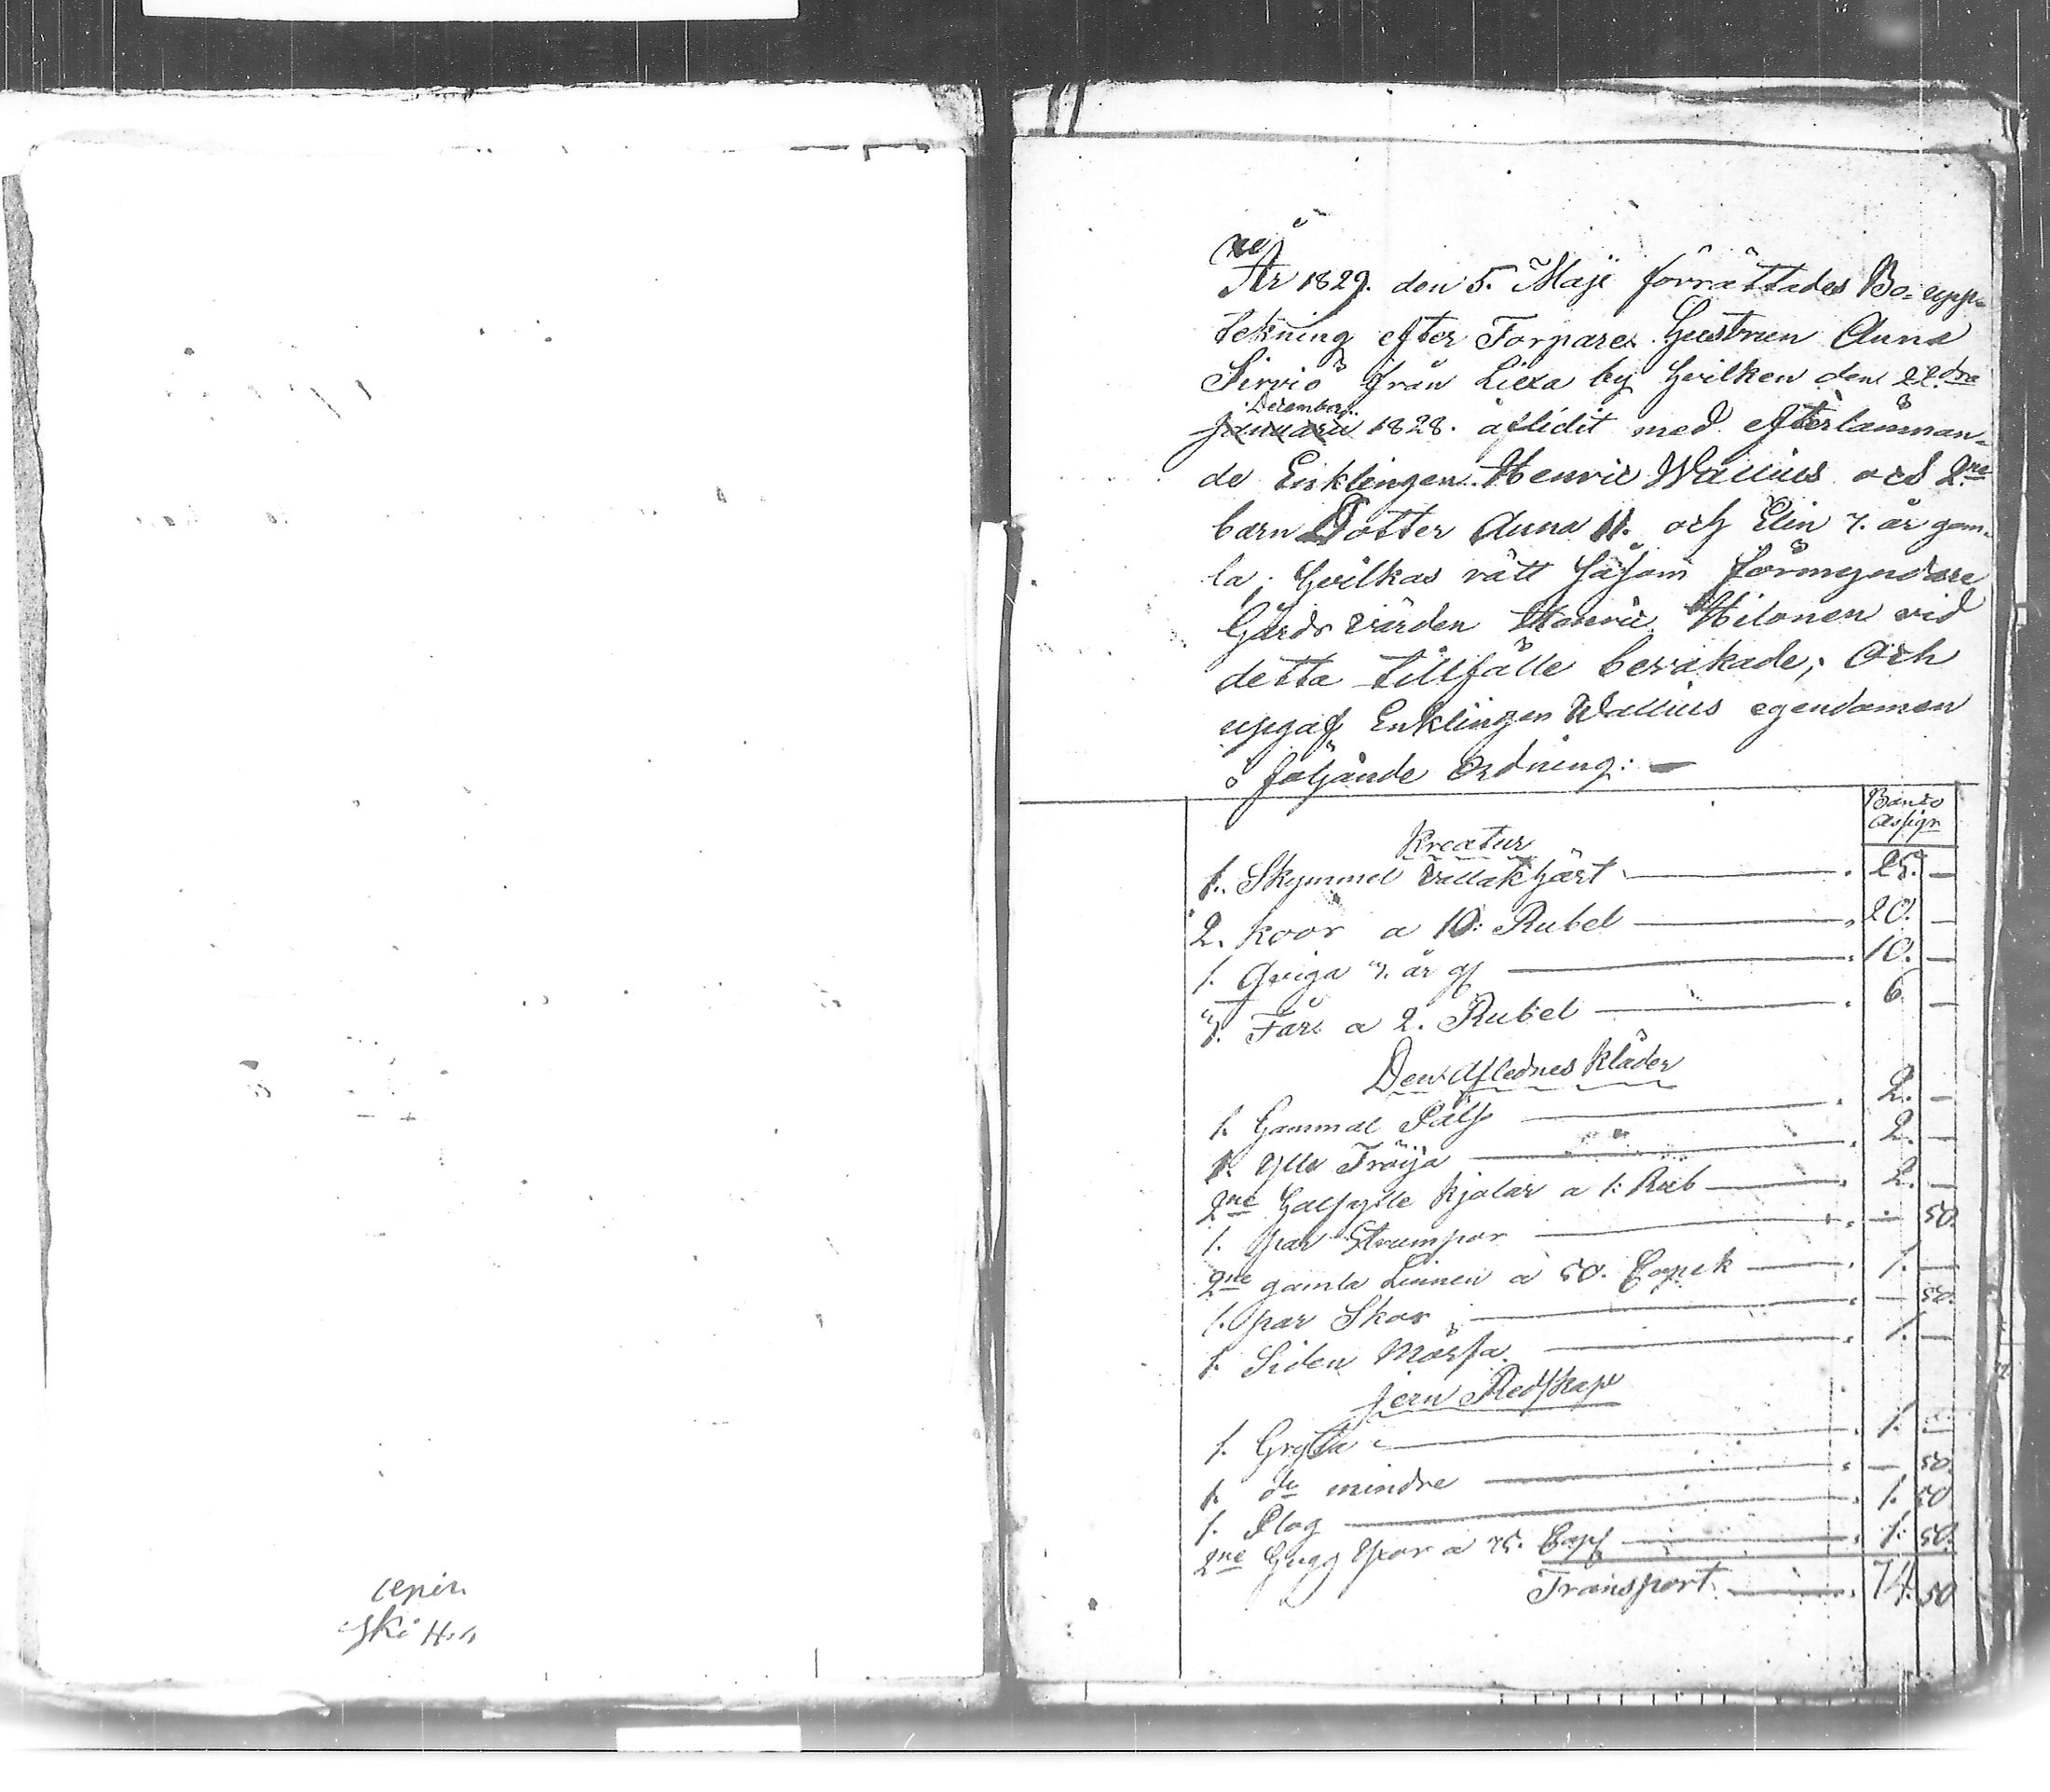 År 1829. den 5. Maji förrättades Bo-upp-
tekning efter Torpare Hustrun Anna
Sirviö från Liexa by hvilken den 22dra
Decembr.
Januarii 1828. aflidit med efterlämnan-
de Enklingen Henric Wallius och 2ne
barn Dotter Anna 11. och Elin 7. år gam-
la; hvilkas rätt såsom förmyndare
Gårds värden Henric Hilonen vid
detta tillfälle bevakade; Och
uppgaf Enklingen Wallius egendomen
i följande Ordning: —
Banco
Assign
Kreatur
1. Skymmel vallak häst 25. —
2. koor a 10: Rubel 20. —
1. Qviga 3. år gl 10. —
3. Får a 2. Rubel 6 —
Den Aflednes Kläder
1. Gammal Päls 2. —
1. Ylle Tröija 2. —
2ne Halfylle kjolar a 1: Rub 2. —
1. par Strumpor — 50.
2ne gamla Linnen a 50. Copek 1. —
1. par Skor — 50.
1. Siden Mössa 1. —
Jern Redskap
1. Gryta 1. —
1. do mindre — 50.
1. Plog 1. 50
2ne Hugg Yxor a 75. Cop 1. 50.
Transport 74. 50